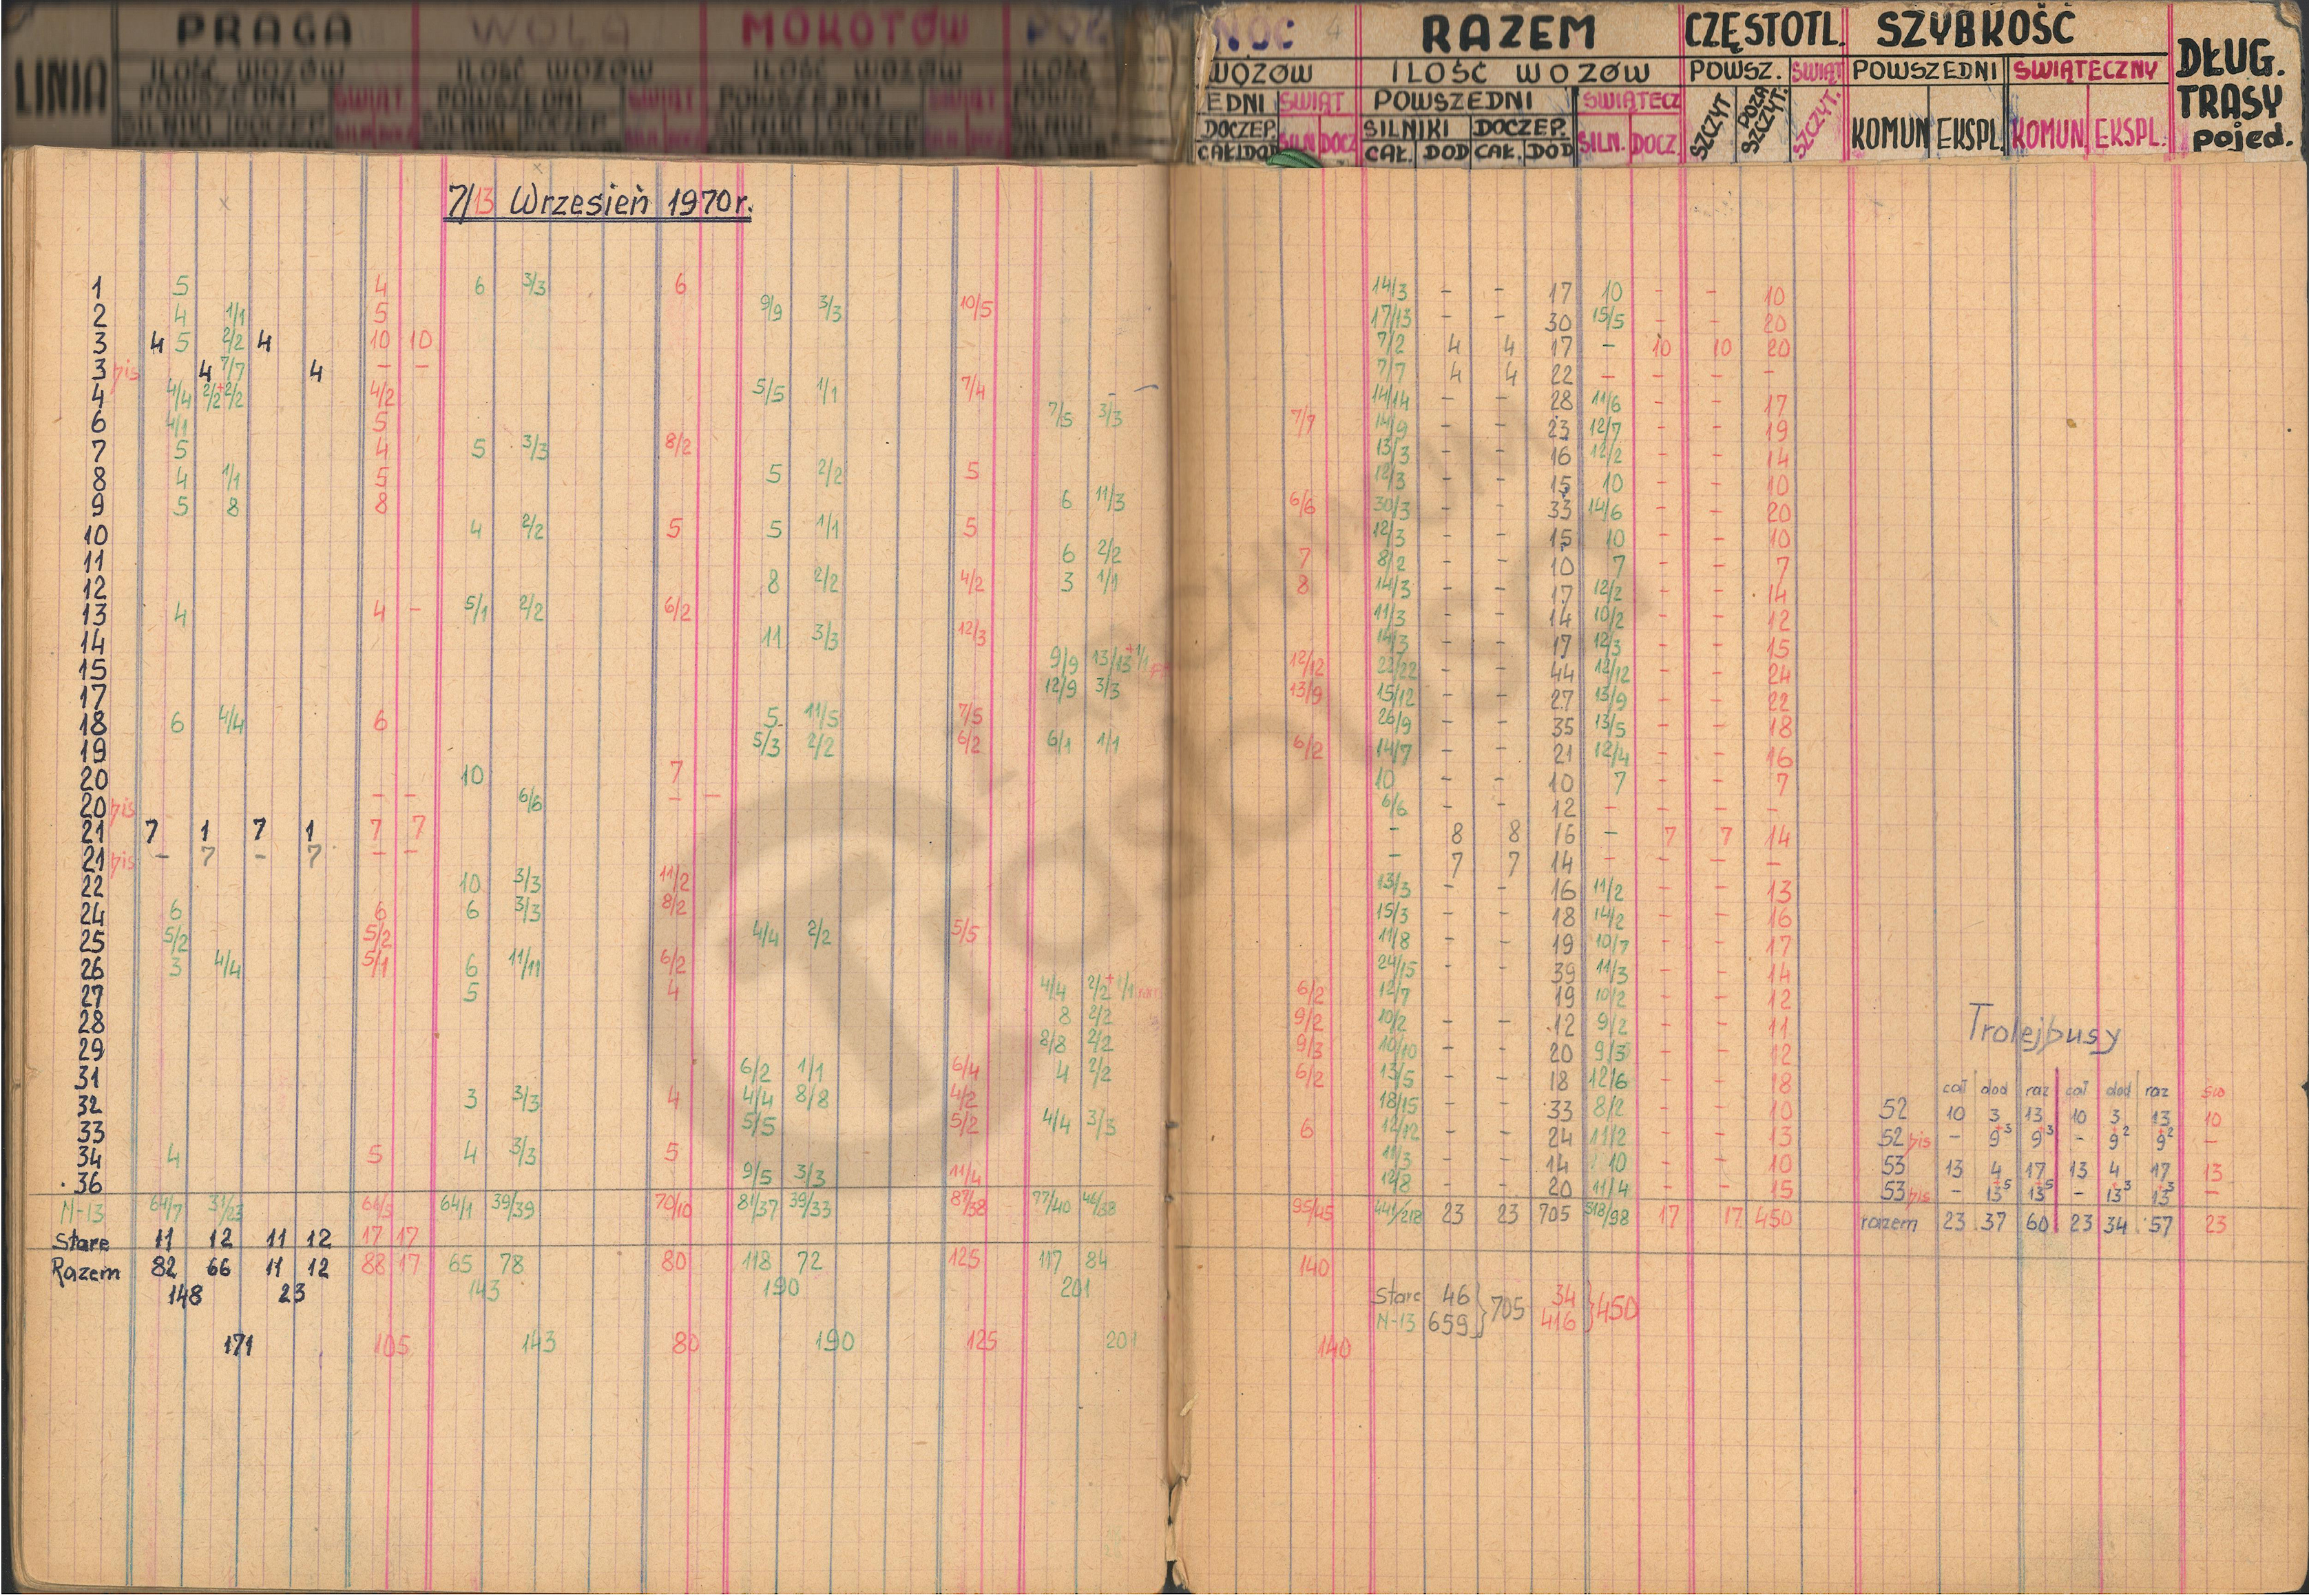 PRAGA WOLA MOKOTÓW PÓŁ NOC 4 RAZEM CZĘSTOTL. SZYBKOŚĆ DŁUG. TRASY pojed.
LINIA ILOŚĆ WOZÓW ILOŚĆ WOZÓW ILOŚĆ WOZÓW ILOŚĆ WOZÓW ILOŚĆ WOZÓW POWSZ. ŚWIĄT POWSZEDNI ŚWIĄTECZNY
POWSZEDNI ŚWIĄT POWSZEDNI ŚWIĄT POWSZEDNI ŚWIĄT POWSZ EDNI ŚWIĄT POWSZEDNI ŚWIĄTECZ SZCZYT POZA SZCZYT. SZCZYT. KOMUN EKSPL. KOMUN. EKSPL.
SILNIKI DOCZEP. SILNIKI DOCZEP. SILNIKI DOCZEP. DOCZEP. SILN DOCZ SILNIKI DOCZEP. SILN. DOCZ.
CAŁ DOD CAŁ. DOD CAŁ. DOD
7/13 Wrzesień 1970r.
1 5 4 6 3/3 6 14/3 - - 17 10 - - 10
2 4 1/1 5 9/9 3/3 10/5 17/13 - - 30 15/5 - - 20
3 4 5 2/2 4 10 10 7/2 4 4 17 - 10 10 20
3 bis 4 7/7 4 - - 7/7 4 4 22 - - - -
4 4/4 2/2+2/2 4/2 5/5 1/1 7/4 - 14/14 - - 28 11/6 - - 17
6 4/1 5 7/5 3/3 7/7 14/9 - - 23 12/7 - - 19
7 5 4 5 3/3 8/2 13/3 - - 16 12/2 - - 14
8 4 1/1 5 5 2/2 5 12/3 - - 15 10 - - 10
9 5 8 8 6 11/3 6/6 30/3 - - 33 14/6 - - 20
10 4 2/2 5 5 1/1 5 12/3 - - 15 10 - - 10
11 6 2/2 7 8/2 - - 10 7 - - 7
12 8 2/2 4/2 3 1/1 8 14/3 - - 17 12/2 - - 14
13 4 4 - 5/1 2/2 6/2 11/3 - - 14 10/2 - - 12
14 11 3/3 12/3 14/3 - - 17 12/3 - - 15
15 9/9 13/13+1/1 12/12 22/22 - - 44 12/12 - - 24
17 12/9 3/3 13/9 15/12 - - 27 13/9 - - 22
18 6 4/4 6 5 11/5 7/5 26/9 - - 35 13/5 - - 18
19 5/3 2/2 6/2 6/1 1/1 6/2 14/7 - - 21 12/4 - - 16
20 10 7 10 - - 10 7 - - 7
20 bis - - 6/6 - - 6/6 - - 12 - - - -
21 7 1 7 1 7 7 - 8 8 16 - 7 7 14
21 bis - 7 - 7 - - - 7 7 14 - - - -
22 10 3/3 11/2 13/3 - - 16 11/2 - - 13
24 6 6 6 3/3 8/2 15/3 - - 18 14/2 - - 16
25 5/2 5/2 4/4 2/2 5/5 11/8 - - 19 10/7 - - 17
26 3 4/4 5/1 6 11/11 6/2 24/15 - 39 11/3 - - 14
27 5 4 4/4 2/2+1/1 6/2 12/7 19 10/2 - - 12
28 8 2/2 9/2 10/2 - - 12 9/2 - - 11
29 8/8 2/2 9/3 10/10 - - 20 9/3 - - 12
31 6/2 1/1 6/4 4 2/2 6/2 13/5 - - 18 12/6 - - 18
32 3 3/3 4 4/4 8/8 4/2 18/15 - - 33 8/2 - - 10
33 5/5 5/2 4/4 3/3 6 12/12 - - 24 11/2 - - 13
34 4 5 4 3/3 5 11/3 - - 14 10 - - 10
36 9/5 3/3 11/4 12/8 - - 20 11/4 - - 15
N-13 64/7 31/23 61/5 64/1 39/39 70/10 81/37 39/33 87/38 77/40 46/38 95/45 441/218 23 23 705 318/98 17 17 450
Stare 11 12 11 12 17 17
Razem 82 66 11 12 88 17 65 78 80 118 72 125 117 84 140
148 23 143 190 201
Stare 46 } 705 34 } 450
N-13 659 416
171 105 143 80 190 125 201 140
Trolejbusy
cał dod raz cał dod raz św
52 10 3 13 10 3 13 10
52 bis - 9+3 9+3 - 9+2 9+2 -
53 13 4 17 13 4 17 13
53 bis - 13+5 13+5 - 13+3 13+3 -
razem 23 37 60 23 34 57 23